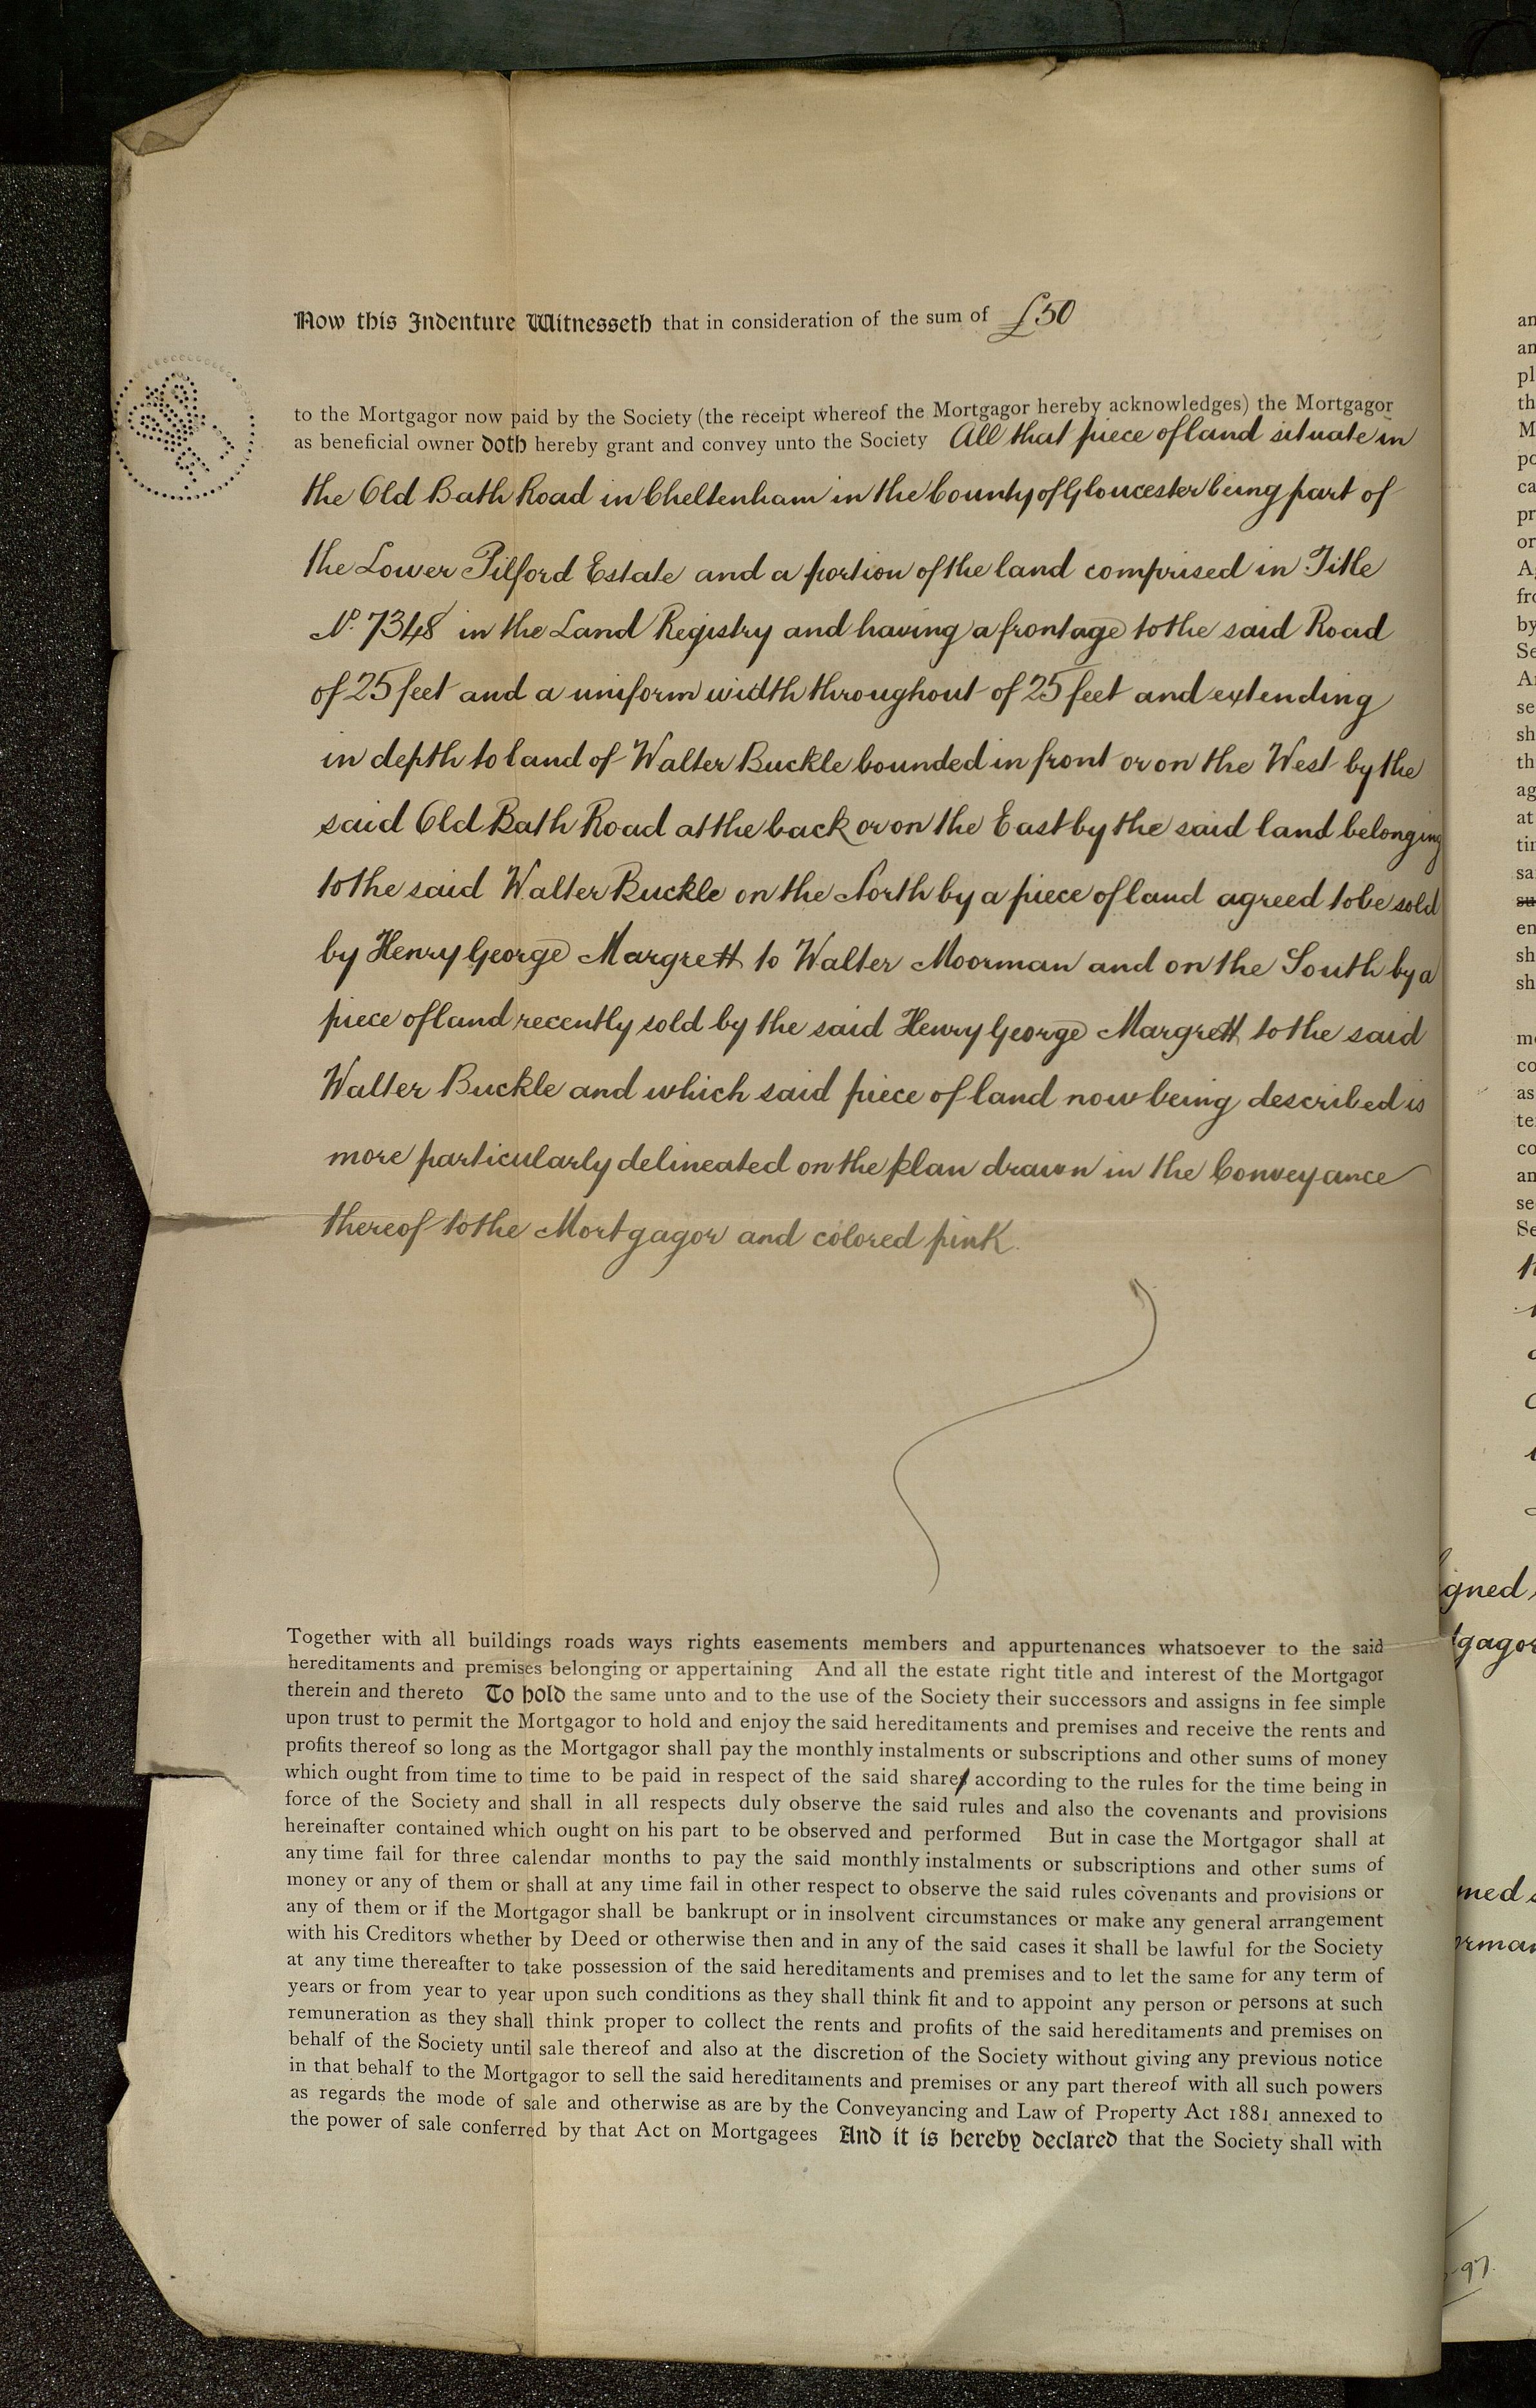 Now this Indenture Witnesseth that in consideration of the sum of £50
to the Mortgagor now paid by the Society (the receipt whereof the Mortgagor hereby acknowledges) the Mortgagor
as beneficial owner doth hereby grant and convey unto the Society All that piece of land situate in
the Old Bath Road in Cheltenham in the County of Gloucester being part of
the Lower Pilford Estate and a portion of the land comprised in Title
No. 7348 in the Land Registry and having a frontage to the said Road
of 25 feet and a uniform width throughout of 25 feet and extending
in depth to land of Walter Buckle bounded in front or on the West by the
said Old Bath Road at the back or on the East by the said land belonging
to the said Walter Buckle on the North by a piece of land agreed to be sold
by Henry George Margrett to Walter Moorman and on the South by a
piece of land recently sold by the said Henry George Margrett to the said
Walter Buckle and which said piece of land now being described is
more particularly delineated on the plan drawn in the Conveyance
thereof to the Mortgagor and colored pink.
Together with all buildings roads ways rights easements members and appurtenances whatsoever to the said
hereditaments and premises belonging or appertaining And all the estate right title and interest of the Mortgagor
therein and thereto To hold the same unto and to the use of the Society their successors and assigns in fee simple
upon trust to permit the Mortgagor to hold and enjoy the said hereditaments and premises and receive the rents and
profits thereof so long as the Mortgagor shall pay the monthly instalments or subscriptions and other sums of money
which ought from time to time to be paid in respect of the said share according to the rules for the time being in
force of the Society and shall in all respects duly observe the said rules and also the covenants and provisions
hereinafter contained which ought on his part to be observed and performed But in case the Mortgagor shall at
any time fail for three calendar months to pay the said monthly instalments or subscriptions and other sums of
money or any of them or shall at any time fail in other respect to observe the said rules covenants and provisions or
any of them or if the Mortgagor shall be bankrupt or in insolvent circumstances or make any general arrangement
with his Creditors whether by Deed or otherwise then and in any of the said cases it shall be lawful for the Society
at any time thereafter to take possession of the said hereditaments and premises and to let the same for any term of
years or from year to year upon such conditions as they shall think fit and to appoint any person or persons at such
remuneration as they shall think proper to collect the rents and profits of the said hereditaments and premises on
behalf of the Society until sale thereof and also at the discretion of the Society without giving any previous notice
in that behalf to the Mortgagor to sell the said hereditaments and premises or any part thereof with all such powers
as regards the mode of sale and otherwise as are by the Conveyancing and Law of Property Act 1881 annexed to
the power of sale conferred by that Act on Mortgagees And it is hereby declared that the Society shall with